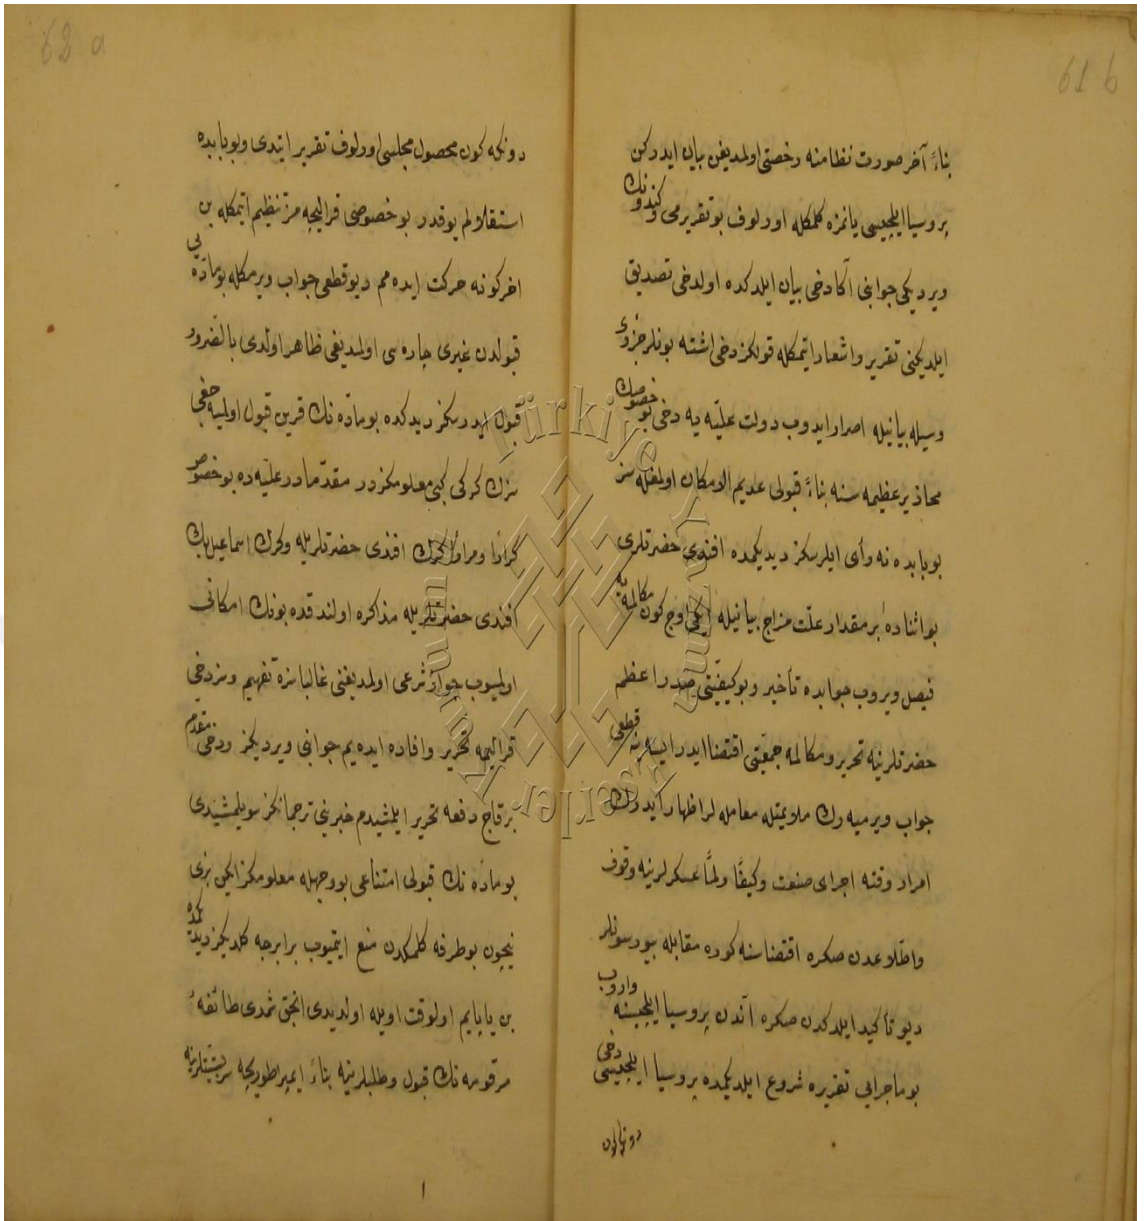 61 b
بناءً آخر صورت نظامنه رخصتی اولمدیغن بیان ایدرکن
پروسیا ایلچیسی یانمزه کلمکله اورلوف بو تقریرمی و کندونك
ویردیکی جوابنی آکا دخی بیان ایلدکده اولدخی تصدیق
ایلدیکنی تقریر و اشعار اتیمکله قولکز دخی اشته بونلر جزوی
وسیله بیانیله اصرار ایدوب دولت علیّه یه دخی بو خصوصك
محاذیر عظیمه سنه بناءً قبولی عدیم الامکان اولمغله سز
بوبابده نه رأی ایلرسکز دیدیکمده افندی حضرتلری
بو اثناده بر مقدار علّت مزاج بیانیله ایکی اوج کون مکالمه یه
فیصل ویروب جوابده تأخیر و بو کیفیّتی صدر اعظم
حضرتلرینه تحریر و مکالمه جمعیّتی اقتضا ایدر ایسه ینه قطعی
جواب ویرمیه رك ملایمتله معامله لر اظهار ایدرك
امرار وقته اجرای صنعت و کیفًا و لمًّا عسکرلرینه وقوف
و اطّلاعدن صکره اقتضاسنه کوره مقابله بیورسونلر
دیو تأکید ایلدکدن صکره آندن پروسیا ایلچیسنه واروب
بو ماجرایی تقریره شروع ایلدیکمده پروسیا ایلچیسی دخی
62 a
دونکه کون محصول مجلسی اورلوف تقریر ایتدی و بوبابده
استقلالم یوقدر بو خصوصی قرالیچه مز تنظیم اتیمکله بن
اخر کونه حرکت ایده مم دیو قطعی جواب ویرمکله بو مادّه یی
قبولدن غیری چاره سی اولمدیغی ظاهر اولدی بالضرور
قبول ایدرسکز دیدکده بو مادّه نك قرین قبول اولمیه جغی
سزك کرکی کبی معلومکزدر مقدّما در علیّه ده بو خصوص
کرارًا و مرارًا کرك افندی حضرتلریله و کرك اسماعیل بك
افندی حضرتلریله مذاکره اولندقده بونك امکانی
اولمیوب جواز شرعی اولمدیغنی غالبا سزه تفهیم و سز دخی
قرالیمه تحریر و افاده ایده یم جوابی ویردیکز و دخی مقدّم
برقاچ دفعه تحریر ایلمشیدم خبرینی ترجمانکز سویلمشیدی
بو مادّه نك قبولی امتناعی بو وجهله معلومکز ایکن بزی
نیچون بو طرفه کلمکدن منع ایتمیوب برابرجه کلدیکز دیدیکمده
بن یاپایم اولوقت اویله اولدیدی انجق شمدی طائفهٔ
مرقومه نك قبول و طلبلرینه بناءً ایمپراطوریچه سربستیتلرینه